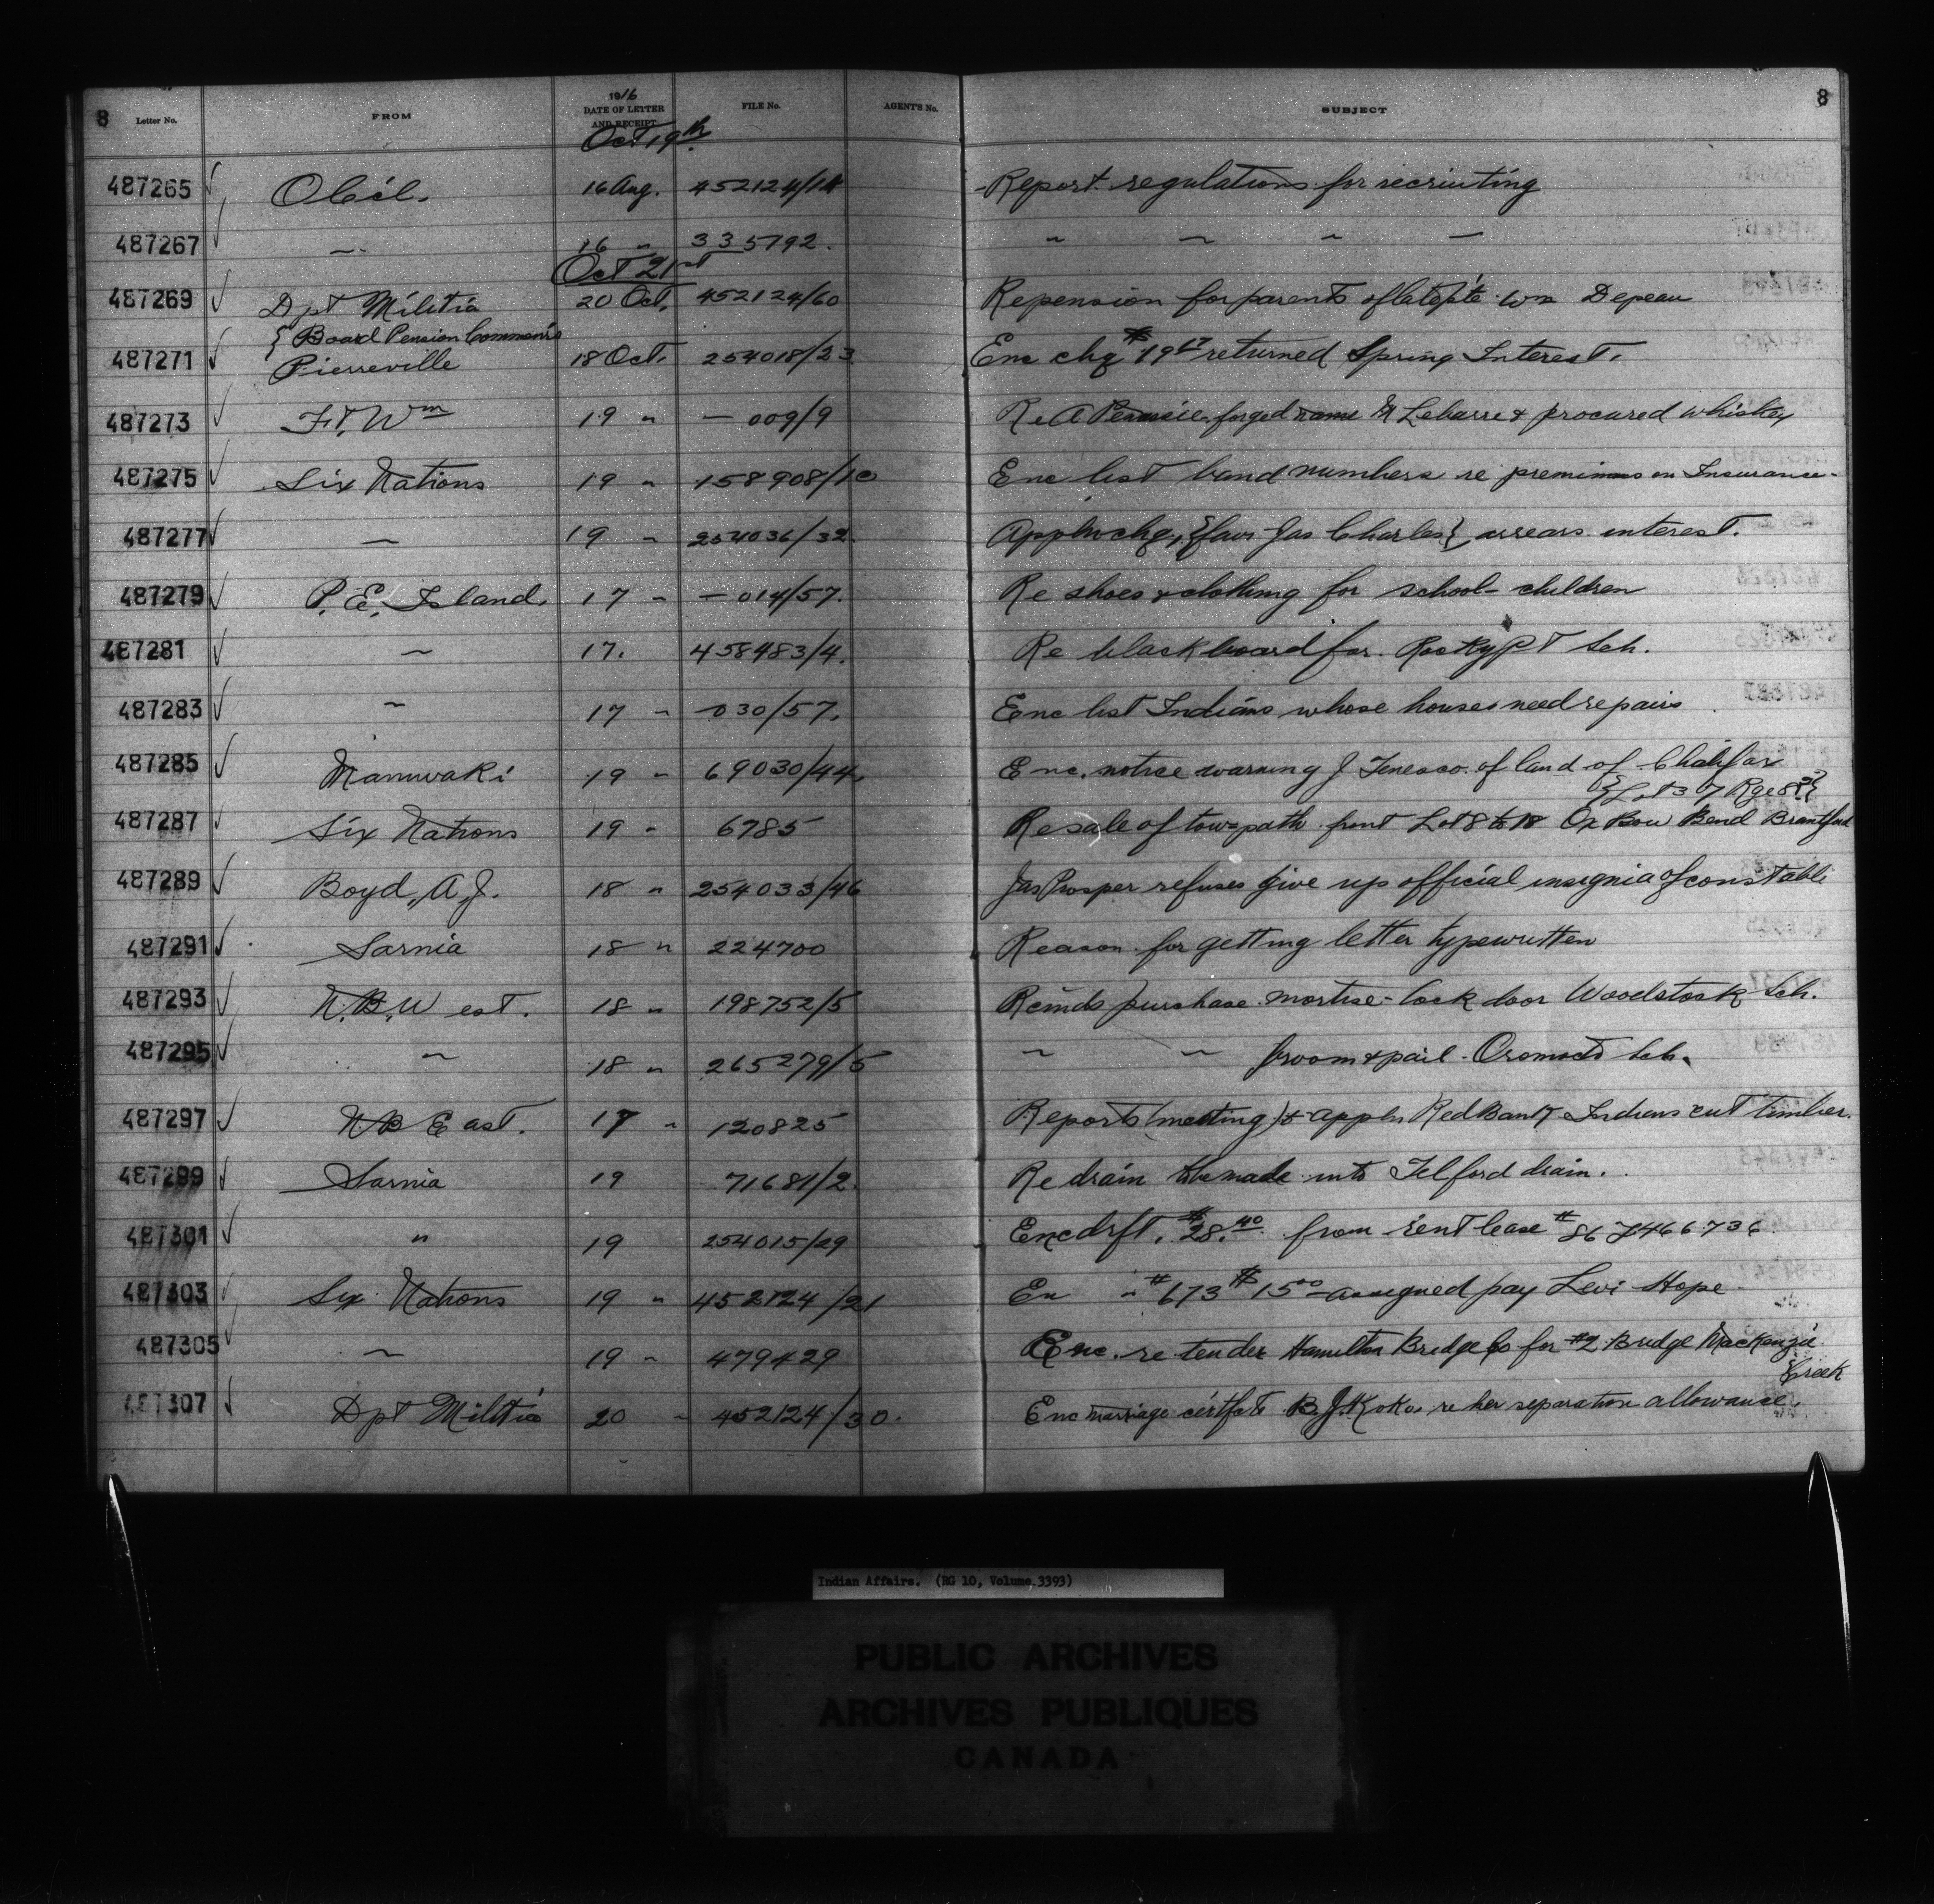 8 Letter No. FROM 1916 DATE OF LETTER AND RECEIPT FILE No. AGENT'S No. SUBJECT 8
Oct 19th
487265 16 Aug. 452124/14 Report regulations for recruiting
487267 〃 16 〃 335792. 〃 〃 〃 〃
Oct 21st
487269 Dpt Militia 20 Oct. 452124/60 Re pension for parents of late pte Wm Depeau
{ Board Pension Commoners
487271 Pierreville 18 Oct. 254018/23 Enc chq $19 67 returned Spring Interest.
487273 Ft. Wm 19 〃 — 009/9 Re A forged name Lebarre & procured whiskey
487275 Six Nations 19 〃 158908/10 Enc list band numbers re premiums on Insurance
487277 〃 19 〃 254036/32 Appln chq., {favr Jas Charles} arrears interest.
487279 P. E. Island. 17 〃 — 014/57. Re shoes & clothing for school-children
487281 〃 17. 458483/4. Re blackboard for Rocky Pt Sch.
487283 〃 17 〃 — 030/57. Enc list Indians whose houses need repairs
487285 Maniwaki 19 〃 69030/44 Enc. notice warning J Tenesco of land of Chalifor
{Lot 37 Rge 8}
487287 Six Nations 19 〃 6785 Re sale of tow-path front Lot 8 to 18 Ox Bow Bend Brantford
487289 Boyd, A, J. 18 〃 254033/46 Jas Prosper refuses give up official insignia of constable
487291 Sarnia 18 〃 224700 Reason for getting letter typewritten
487293 N. B. West. 18 〃 198752/5 Rcmds purchase mortise-lock door Woodstock Sch.
487295 〃 18 〃 265279/5 〃 〃 broom & pail - Oromocto Sch.
487297 N B East. 17 〃 120825 Reports (meeting) & appln Red Bank Indians cut timber.
487299 Sarnia 19 71681/2. Re drain to be made into Telford drain.
487301 〃 19 254015/29 Enc drft. $28.40 from rent lease #86 466736
487303 Six Nations 19 〃 452124/21 En 〃 #673 $15 00 assigned pay Levi Hope
487305 〃 19 〃 479429 Enc. re tender Hamilton Bridge Co for #2 Bridge MacKenzie
Creek
487307 Dpt Militia 20 〃 452124/30. Enc marriage certfcte B.J. Kokos re her separation allowance.
Indian Affairs. (RG 10, Volume 3393)
PUBLIC ARCHIVES
ARCHIVES PUBLIQUES
CANADA